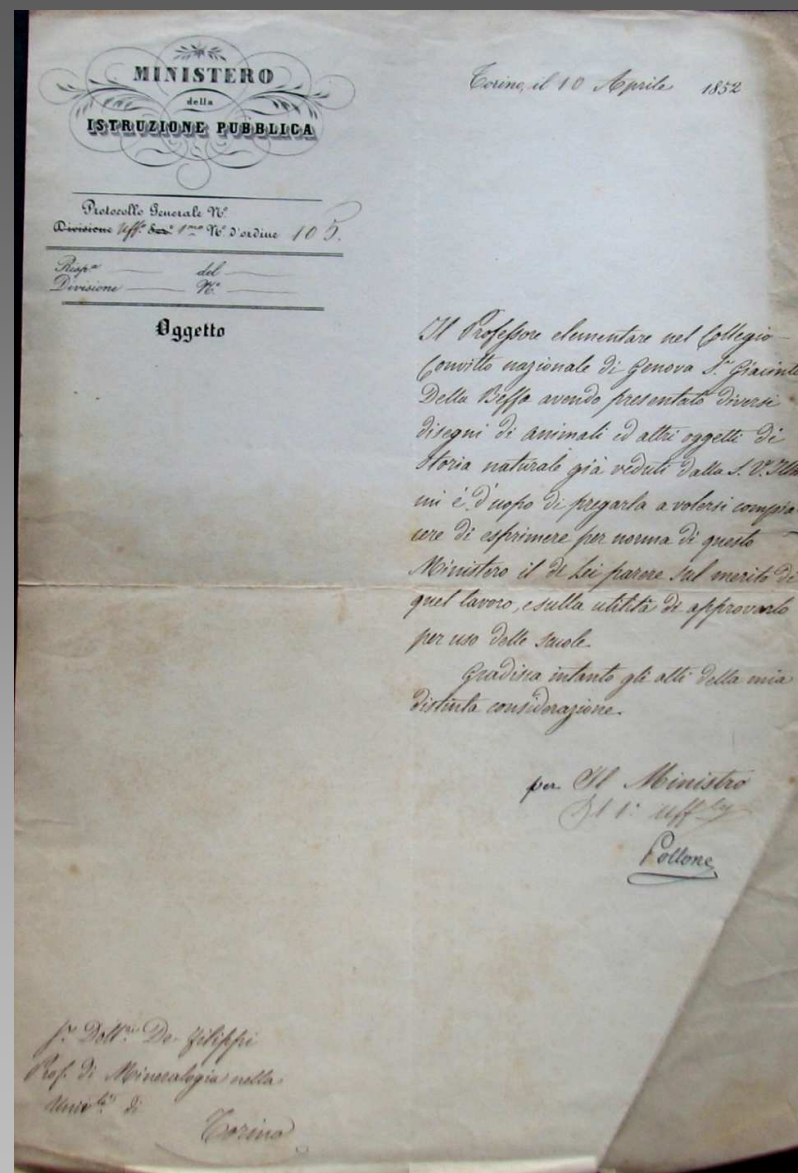 MINISTERO
della
ISTRUZIONE PUBBLICA
Torino, il 10 Aprile 1852
Protocollo Generale N.º
Divisione Uff.º 1.mo N.º d'ordine 105.
Risp.ta del
Divisione N.º
Oggetto
Il Professore elementare nel Collegio
Convitto nazionale di Genova S.r Giacinto
Della Beffa avendo presentato diversi
disegni di animali ed altri oggetti di
Storia naturale già veduti dalla S. V. Ill
mi è d'uopo di pregarla a volersi compia
cere di esprimere per norma di questo
Ministero il di Lei parere sul merito di
quel lavoro, e sulla utilità di approvarlo
per uso delle scuole.
Gradisca intanto gli atti della mia
distinta considerazione.
per Il Ministro
Il 1.º Uff.
S.r Dott. De Filippi
Prof. di Mineralogia nella
Univ.tà di
Torino